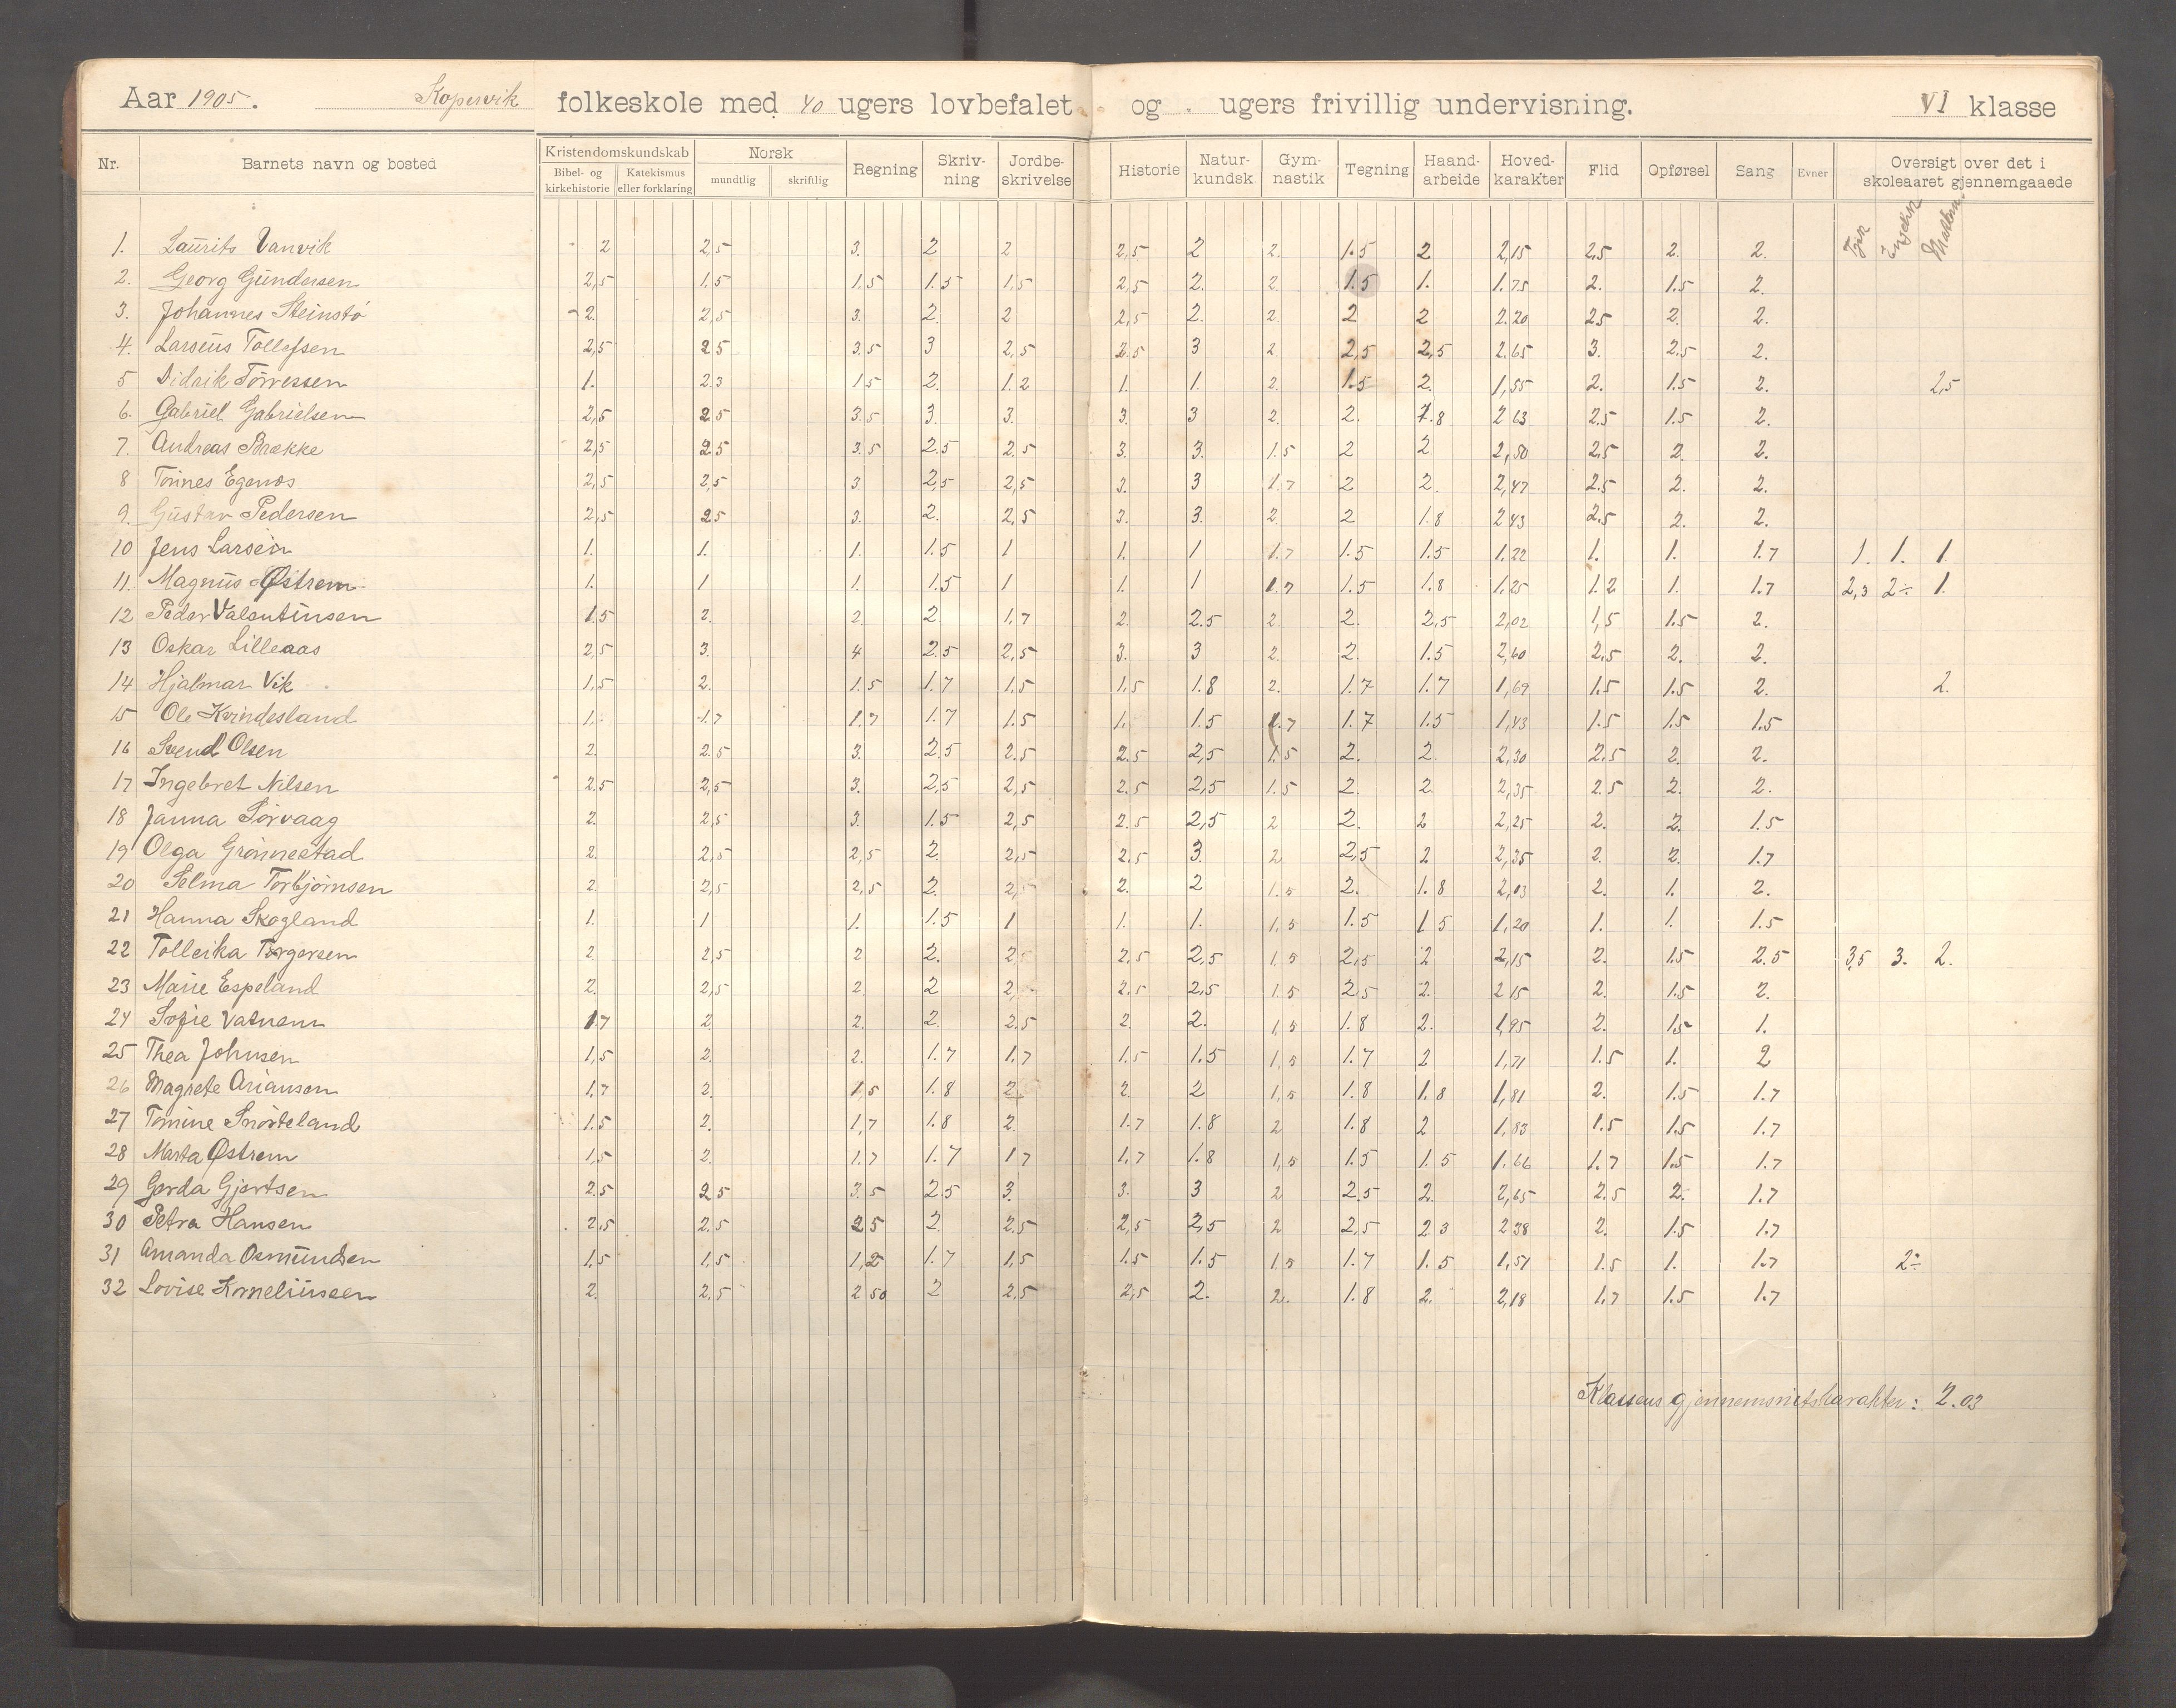 Aar 1905. Kopervik folkeskole med 40 ugers lovbefalet og . ugers frivillig undervisning. VI klasse
Nr. Barnets navn og bosted Kristendomskundskab Bibel- og kirkehistorie Katekismus eller forklaring Norsk mundtlig skriftlig Regning Skriv-ning Jordbe-skrivelse Historie Natur-kundsk. Gym-nastik Tegning Haand-arbeide Hoved-karakter Flid Opførsel Sang Evner Oversigt over det i skoleaaret gjennemgaaede
Tysk Engelsk Mathem.
1. Laurits Vanvik 2 2,5 3. 2 2 2,5 2 2. 1.5 2 2,15 2,5 2. 2.
2. Georg Gundersen 2,5 1,5 1,5 1.5 1,5 2,5 2. 2. 1.5 1. 1.75 2. 1.5 2.
3. Johannes Steinstø 2. 2,5 3. 2. 2 2,5 2. 2. 2 2 2.20 2.5 2. 2.
4. Larseus Tollefsen 2,5 2.5 3.5 3 2,5 2.5 3 2 2,5 2,5 2.65 3. 2.5 2.
5 Didrik Tørressen 1. 2.3 1.5 2. 1.2 1. 1. 2. 1.5 2. 1,55 2. 1.5 2. 2,5
6. Gabriel Gabrielsen 2,5 2.5 3.5 3. 3. 3. 3 2. 2. 1.8 2 63 2.5 1.5 2.
7. Andreas Brække 2,5 2.5 3.5 2.5 2.5 3. 3. 1.5 2 2. 2,50 2.5 2. 2.
8 Tönnes Egenæs 2,5 2,5 3. 2,5 2,5 3. 3 1.7 2 2. 2,47 2.5 2. 2.
9. Gustav Pedersen 2,5 2.5 3. 2. 2,5 3. 3. 2. 2 1.8 2 43 2.5 2. 2.
10 Jens Larsen 1. 1. 1. 1.5 1 1. 1 1.7 1.5 1.5 1.22 1. 1. 1.7 1. 1. 1.
11. Magnus Østrem 1. 1 1. 1.5 1 1. 1 1.7 1.5 1.8 1.25 1.2 1. 1.7 2,3 2÷ 1.
12 Peder Valentinsen 1.5 2. 2. 2. 1,7 2. 2.5 2. 2. 2,5 2,02 1,5 1.5 2.
13 Oskar Lilleaas 2,5 3. 4 2.5 2,5 3. 3 2. 2. 1.5 2,60 2.5 2. 2.
14 Hjalmar Vik 1,5 2. 1.5 1.7 1,5 1,5 1.8 2. 1.7 1.7 1,69 1.5 1.5 2. 2.
15 Ole Kvindesland 1. 1.7 1.7 1.7 1.5 1. 1.5 1.7 1.7 1.5 1,43 1.5 1.5 1.5
16 Svend Olsen 2. 2.5 3. 2.5 2.5 2.5 2,5 1.5 2. 2. 2,30 2.5 2. 2.
17 Ingebret Nilsen 2.5 2,5 3. 2,5 2,5 2.5 2,5 1.5 2. 2. 2,35 2.5 2. 2.
18 Janna Sørvaag 2. 2,5 3. 1.5 2,5 2.5 2,5 2 2. 2 2,25 2. 2. 1.5
19 Olga Grønnestad 2. 2,5 2,5 2. 2,5 2.5 3. 2 2,5 2 2,35 2. 2. 1.7
20 Selma Torbjørnsen 2 2,5 2,5 2. 2,5 2. 2 1.5 2. 1.8 2,03 2. 1. 2.
21 Hanna Skogland 1. 1 1. 1.5 1 1. 1. 1,5 1.5 1 5 1,20 1. 1. 1.5
22 Tolleika Torgersen 2 2,5 2 2. 2,5 2.5 2,5 1,5 2,5 2 2,15 2. 1.5 2.5 3,5 3. 2.
23 Marie Espeland 2. 2,5 2. 2 2, 2.5 2,5 1.5 2,5 2. 2 15 2. 1.5 2.
24 Sofie Vatnem 1.7 2. 2. 2. 2.5 2. 2. 1,5 1.8 2. 1,95 2. 1.5 1.
25 Thea Johnsen 1,5 2. 2. 1.7 1.7 1.5 1.5 1,5 1.7 2 1,71 1.5 1. 2
26 Magrete Ariansen 1.7 2. 1,5 1.8 2. 2. 2 1,5 1.8 1.8 1,81 2. 1.5 1.7
27 Tomine Snørteland 1.5 2. 1,7 1.8 2. 1.7 1.8 2 1.8 2 1,83 1.5 1.5 1.7
28 Marta Østrem 1,5 2. 1.7 1.7 1 7 1,7 1.8 1,5 1.5 1.5 1.66 1.7 1.5 1.7
29 Gerda Gjertsen 2.5 2 5 3.5 2.5 3. 3. 3 2 2.5 2. 2,65 2.5 2. 1.7
30 Petra Hansen 2,5 2.5 2 5 2. 2.5 2,5 2,5 2 2,5 2 3 2 38 2. 1.5 1.7
31 Amanda Osmundsen 1,5 1,5 1,2 1.7 1,5 1.5 1.5 1,5 1.7 1.5 1,51 1.5 1. 1.7 2÷
32 Lovise Korneliussen 2. 2.5 2 50 2 2.5 2,5 2. 2. 1.8 2. 2,18 1.7 1.5 1.7
Klassens gjennemsnitskarakter: 2.03